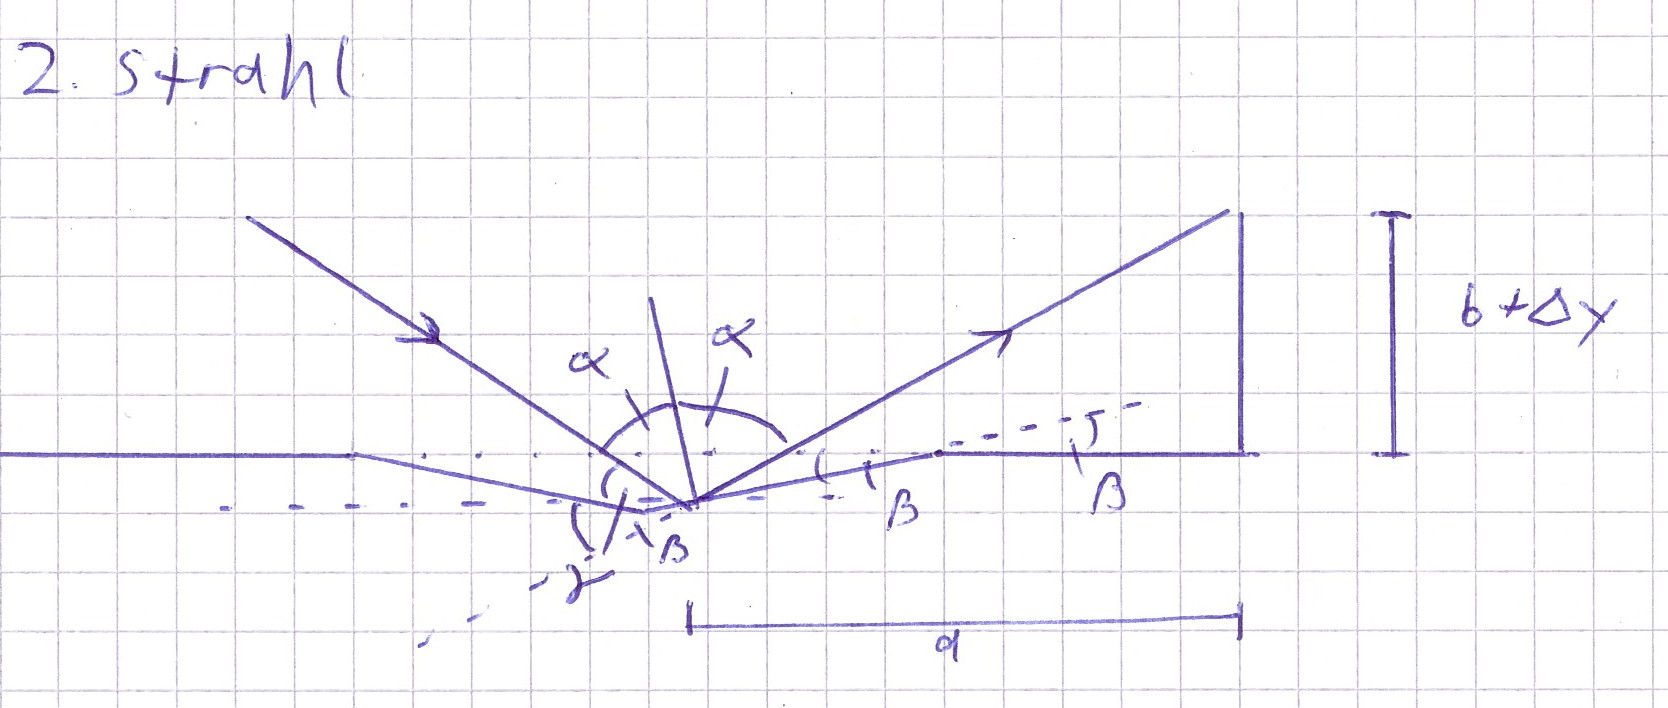 2. Strahl
α
α
b + Δy
β
β
β
γ
d